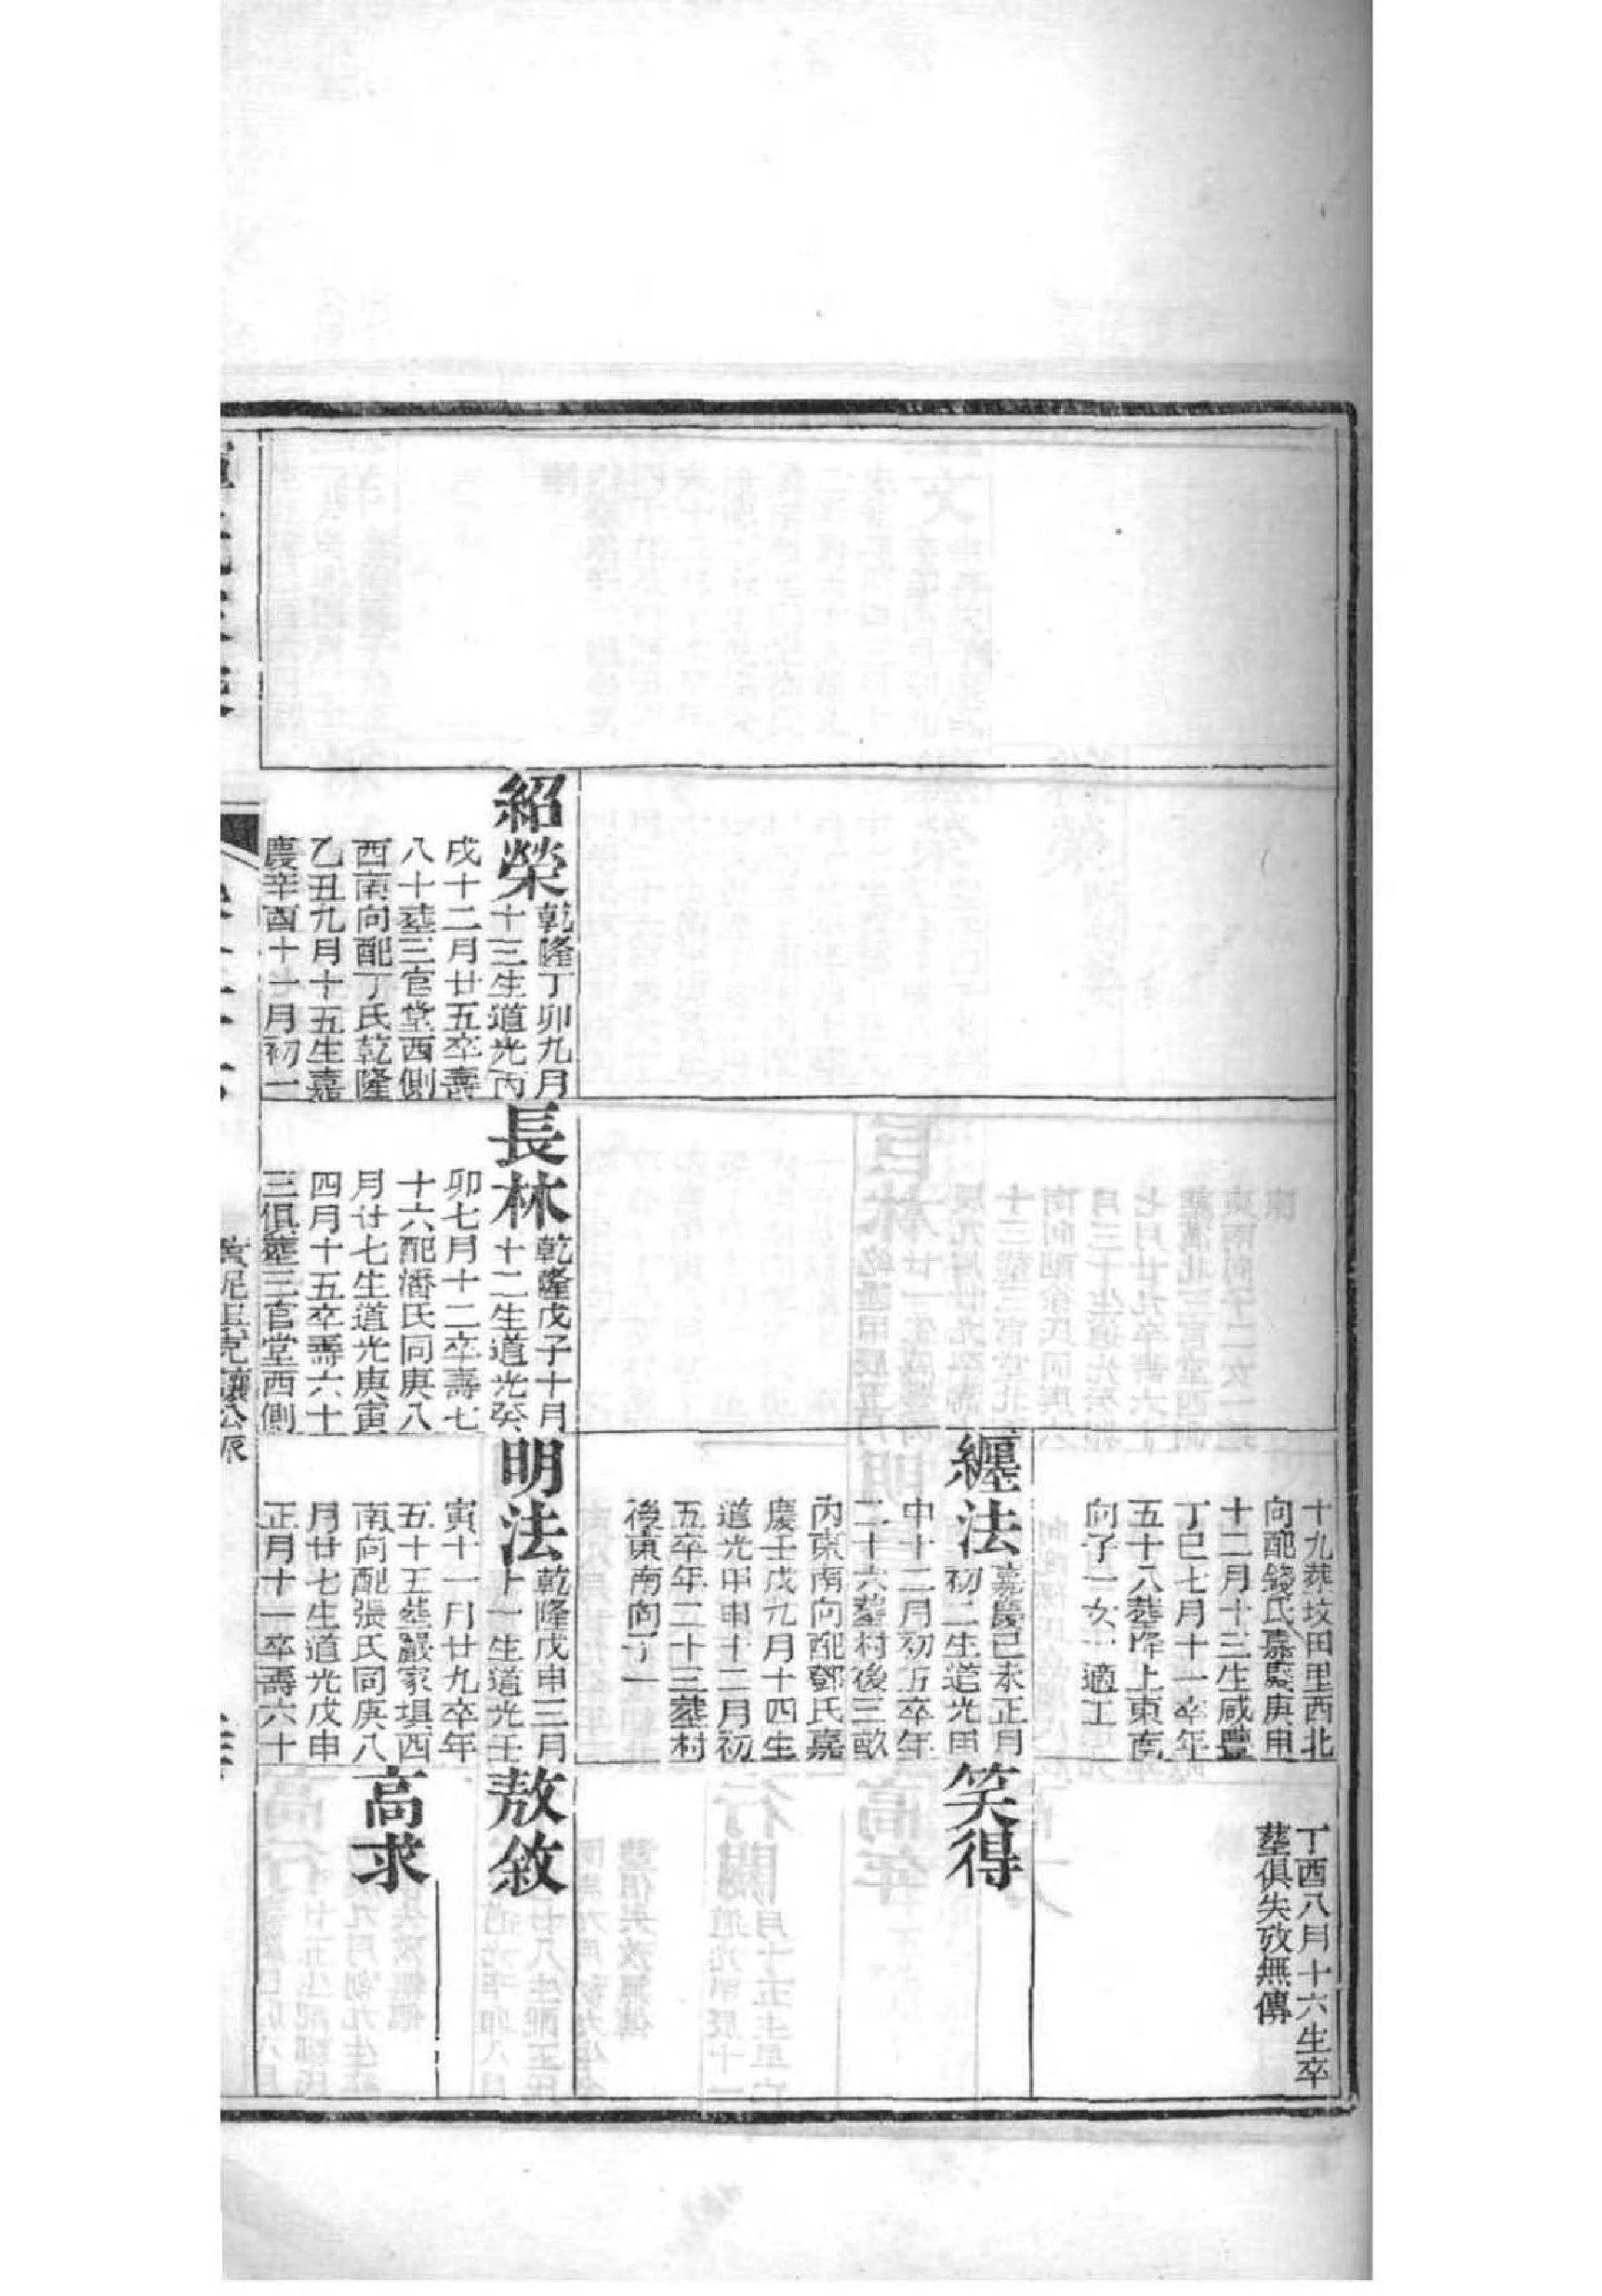 紹榮
乾隆丁卯九月
十三生道光丙
戌十二月廿五卒壽
八十塟三官堂西側
西南向配丁氏乾隆
乙丑九月十五生嘉
慶辛酉十一月初一
長林
乾隆戊子十月
十二生道光癸
卯七月十二卒壽七
十六配潘氏同庚八
月廿七生道光庚寅
四月十五卒壽六十
三俱塟三官堂西側
十九塟坟田里西北
向配錢氏嘉慶庚申
十二月十三生咸豐
丁巳七月十一卒年
五十八塟降上東南
向子一女一適工
纏法
嘉慶己未正月
初二生道光甲
申十二月初五卒年
二十六塟村後三畝
內東南向配鄧氏嘉
慶壬戌九月十四生
道光甲申十二月初
五卒年二十三塟村
後東南向子一
明法
乾隆戊申三月
十一生道光壬
寅十一月廿九卒年
五十五塟嚴家垻西
南向配張氏同庚八
月廿七生道光戊申
正月十一卒壽六十
丁酉八月十六生卒
塟俱失攷無傳
笑得
敖敘
高求